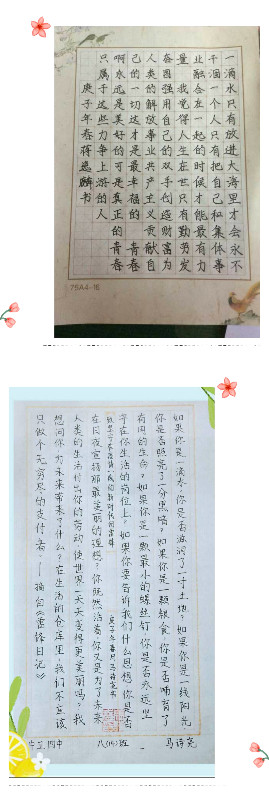 一滴水只有放进大海里才会永不
干涸一个人只有把自己和集体事
业融合在一起的时候才能最有力
量 我觉得人生在世只有勤劳发
奋图强用自己的双手创造财富为
人类的解放事业共产主义贡献自
己的一切这才是最幸福的 青春
啊永远是美好的可是真正的青春
只属于这些力争上游的人
庚子年春蒋逸麟书
79A4-16
如果你是一滴水,你是否滋润了一寸土地,如果你是一线阳光
你是否照亮了一分黑暗?如果你是一颗粮食,你是否哺育了
有用的生命?如果你是一颗最小的螺丝钉,你是否永远坚
守在你生活的岗位上?如果你要告诉我们什么思想,你是否
在日夜宣扬那最美丽的理想?你既然活着,你又是为了未来
人类的生活付出你的劳动,使世界一天天变得更美丽吗?我
想问你,为未来带来了什么?在生活的仓库里,我们不应该
只做个无穷尽的支付者——摘自《雷锋日记》
四中 八(15)班 马诗尧